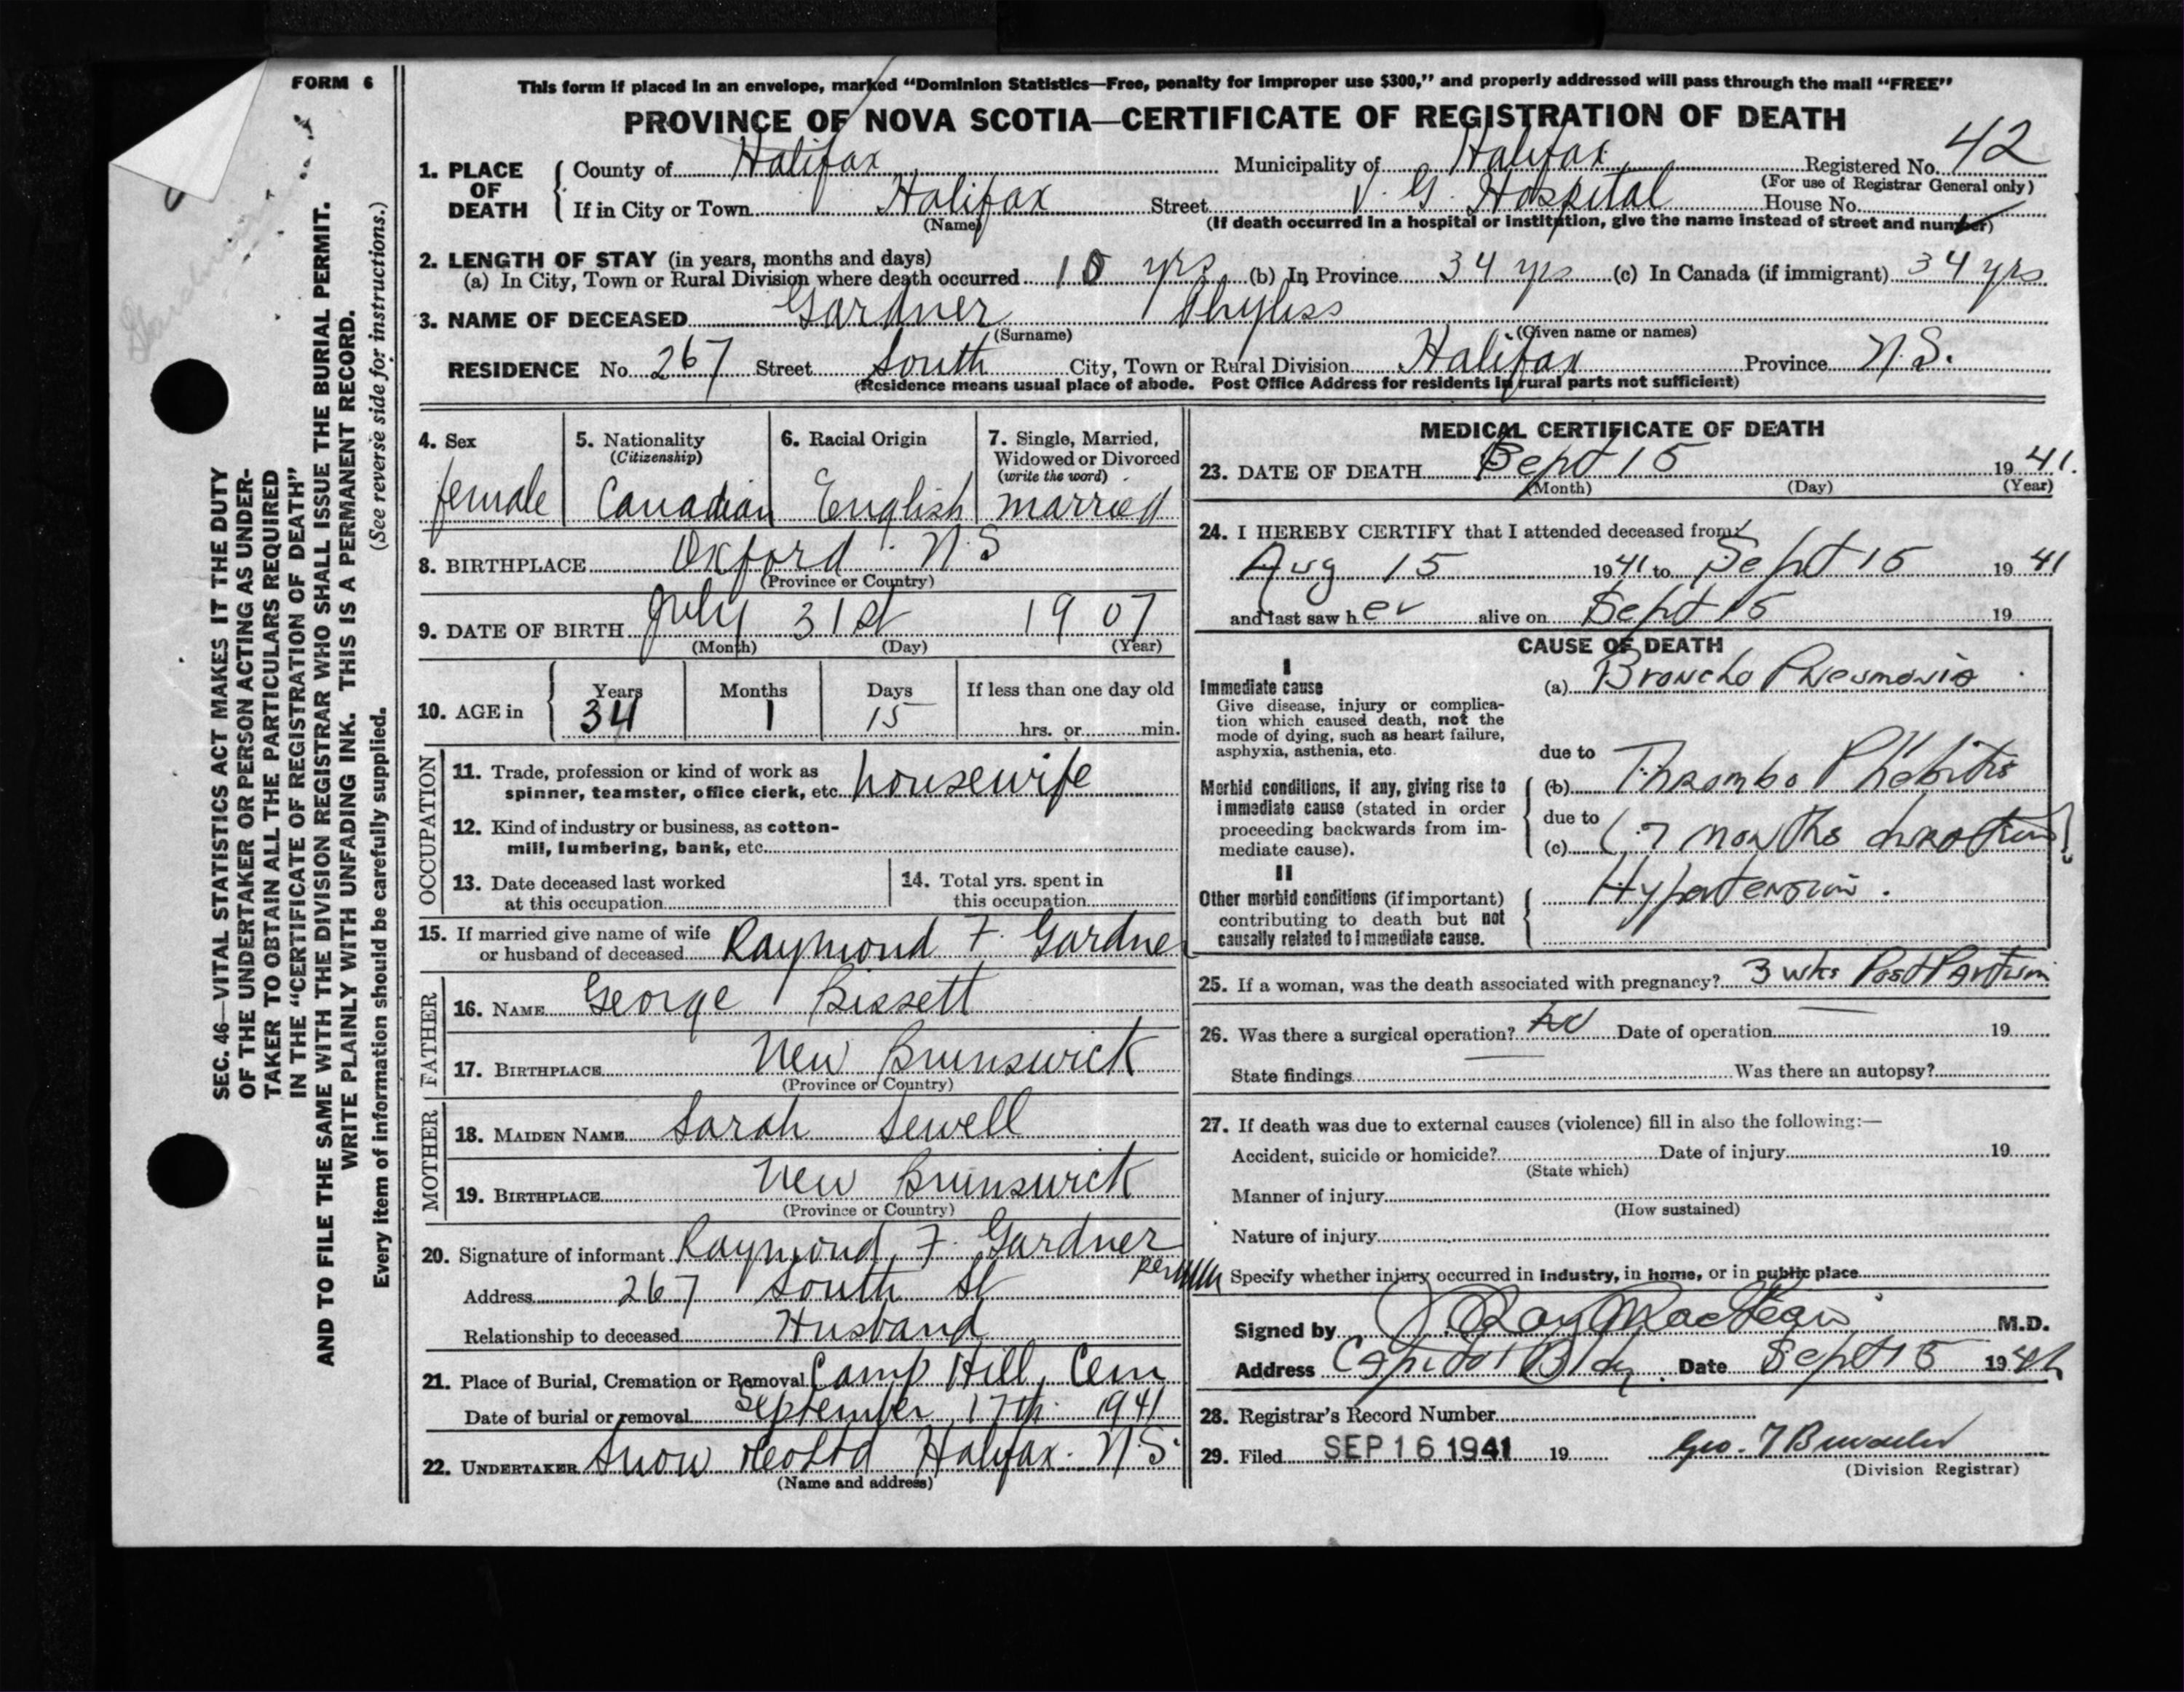 FORM 6
This form if placed in an envelope, marked "Dominion Statistics—Free, penalty for improper use $300," and properly addressed will pass through the mail "FREE"
PROVINCE OF NOVA SCOTIA—CERTIFICATE OF REGISTRATION OF DEATH
1. PLACE OF DEATH County of Halifax Municipality of Halifax Registered No. 42
(For use of Registrar General only)
If in City or Town Halifax Street V. G. Hospital House No.
(Name) (If death occurred in a hospital or institution, give the name instead of street and number)
2. LENGTH OF STAY (in years, months and days)
(a) In City, Town or Rural Division where death occurred 10 yrs (b) In Province 34 yrs (c) In Canada (if immigrant) 34 yrs
3. NAME OF DECEASED Gardner Phyliss
(Surname) (Given name or names)
RESIDENCE No. 267 Street South City, Town or Rural Division Halifax Province N.S.
(Residence means usual place of abode. Post Office Address for residents in rural parts not sufficient)
4. Sex
female
5. Nationality
(Citizenship)
Canadian
6. Racial Origin
English
7. Single, Married,
Widowed or Divorced
(write the word)
married
8. BIRTHPLACE Oxford N.S
(Province or Country)
9. DATE OF BIRTH July 31st 1907
(Month) (Day) (Year)
10. AGE in Years Months Days If less than one day old
34 1 15 hrs. or min.
OCCUPATION
11. Trade, profession or kind of work as
spinner, teamster, office clerk, etc. housewife
12. Kind of industry or business, as cotton-
mill, lumbering, bank, etc.
13. Date deceased last worked
at this occupation
14. Total yrs. spent in
this occupation
15. If married give name of wife
or husband of deceased Raymond F. Gardner
FATHER
16. NAME George Bissett
17. BIRTHPLACE New Brunswick
(Province or Country)
MOTHER
18. MAIDEN NAME Sarah Sewell
19. BIRTHPLACE New Brunswick
(Province or Country)
20. Signature of informant Raymond F. Gardner
per
Address 267 South St
Relationship to deceased Husband
21. Place of Burial, Cremation or Removal Camp Hill Cem
Date of burial or removal September 17th 1941
22. UNDERTAKER Snow Ltd Halifax. N.S.
(Name and address)
MEDICAL CERTIFICATE OF DEATH
23. DATE OF DEATH Sept 15 1941.
(Month) (Day) (Year)
24. I HEREBY CERTIFY that I attended deceased from
Aug 15 1941 to Sept 15 1941
and last saw her alive on Sept 15 19
CAUSE OF DEATH
I
Immediate cause
Give disease, injury or complica-
tion which caused death, not the
mode of dying, such as heart failure,
asphyxia, asthenia, etc.
(a) Broncho Pneumonia
due to
Morbid conditions, if any, giving rise to
immediate cause (stated in order
proceeding backwards from im-
mediate cause).
(b) Thrombo Phlebitis
due to
(c) (7 months duration)
II
Other morbid conditions (if important)
contributing to death but not
causally related to immediate cause.
Hypertension.
25. If a woman, was the death associated with pregnancy? 3 wks Post Partum
26. Was there a surgical operation? no Date of operation 19
State findings Was there an autopsy?
27. If death was due to external causes (violence) fill in also the following:—
Accident, suicide or homicide? Date of injury 19
(State which)
Manner of injury
(How sustained)
Nature of injury
Specify whether injury occurred in industry, in home, or in public place
Signed by M.D.
Address Capitol Bldg. Date Sept 15 1941
28. Registrar's Record Number
29. Filed SEP 16 1941 19 Geo.
(Division Registrar)
SEC. 46—VITAL STATISTICS ACT MAKES IT THE DUTY
OF THE UNDERTAKER OR PERSON ACTING AS UNDER-
TAKER TO OBTAIN ALL THE PARTICULARS REQUIRED
IN THE "CERTIFICATE OF REGISTRATION OF DEATH"
AND TO FILE THE SAME WITH THE DIVISION REGISTRAR WHO SHALL ISSUE THE BURIAL PERMIT.
WRITE PLAINLY WITH UNFADING INK. THIS IS A PERMANENT RECORD.
Every item of information should be carefully supplied. (See reverse side for instructions.)